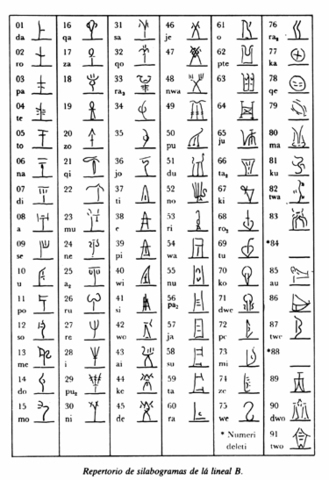 01
da
02
ro
03
pa
04
te
05
to
06
na
07
di
08
a
09
se
10
u
11
po
12
so
13
me
14
do
15
mo
16
qa
17
za
18
19
20
zo
21
qi
22
23
mu
24
ne
25
a₂
26
ru
27
re
28
i
29
pu₂
30
ni
31
sa
32
qo
33
ra₃
34
35
36
jo
37
ti
38
e
39
pi
40
wi
41
si
42
wo
43
ai
44
ke
45
de
46
je
47
48
nwa
49
50
pu
51
du
52
no
53
ri
54
wa
55
nu
56
pa₂
57
ja
58
su
59
ta
60
ra
61
o
62
pte
63
64
65
ju
66
ta₂
67
ki
68
ro₂
69
tu
70
ko
71
dwe
72
pe
73
mi
74
ze
75
we
* Numeri
deleti
76
ra₂
77
ka
78
qe
79
80
ma
81
ku
82
twa
83
*84
85
au
86
87
twe
*88
89
90
dwo
91
two
Repertorio de silabogramas de là lineal B.